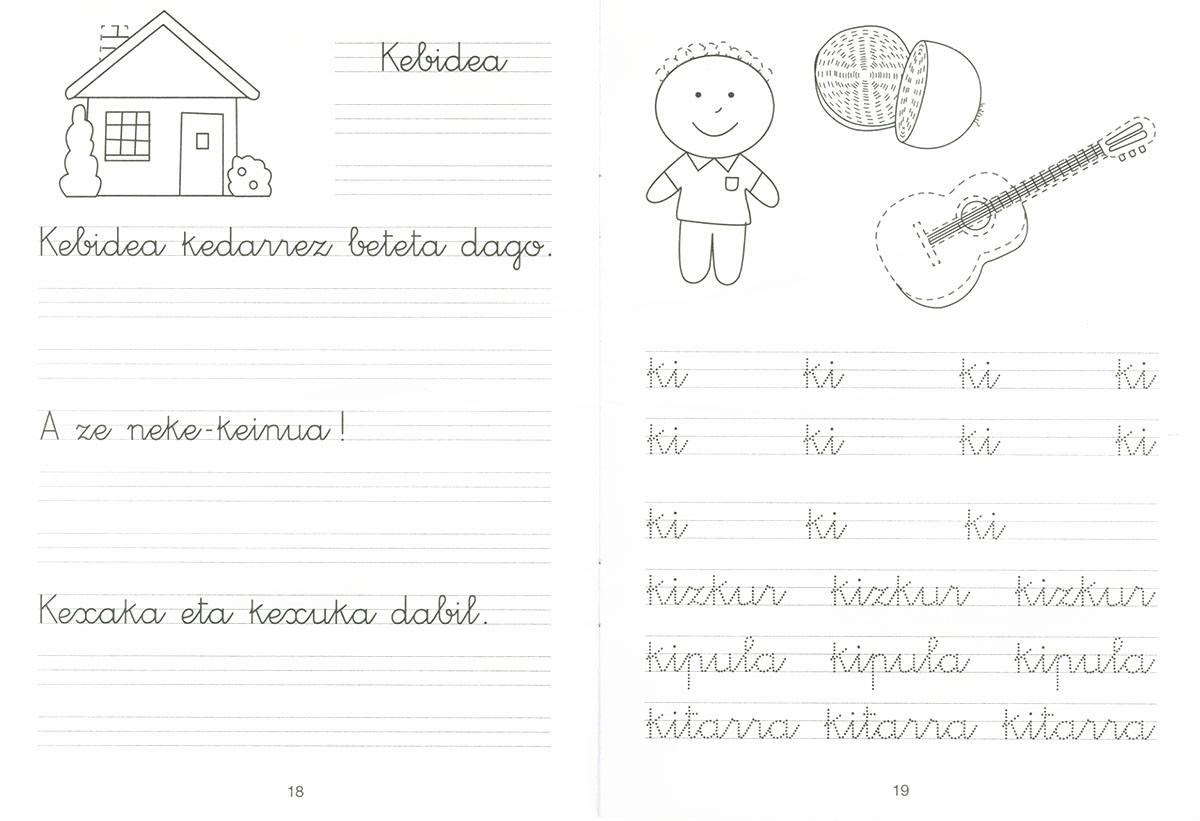 Kebidea
Kebidea kedarrez beteta dago.
A ze neke-keinua!
Kexaka eta kexuka dabil.
18
ki ki ki ki
ki ki ki ki
ki ki ki
kizkur kizkur kizkur
kipula kipula kipula
kitarra kitarra kitarra
19